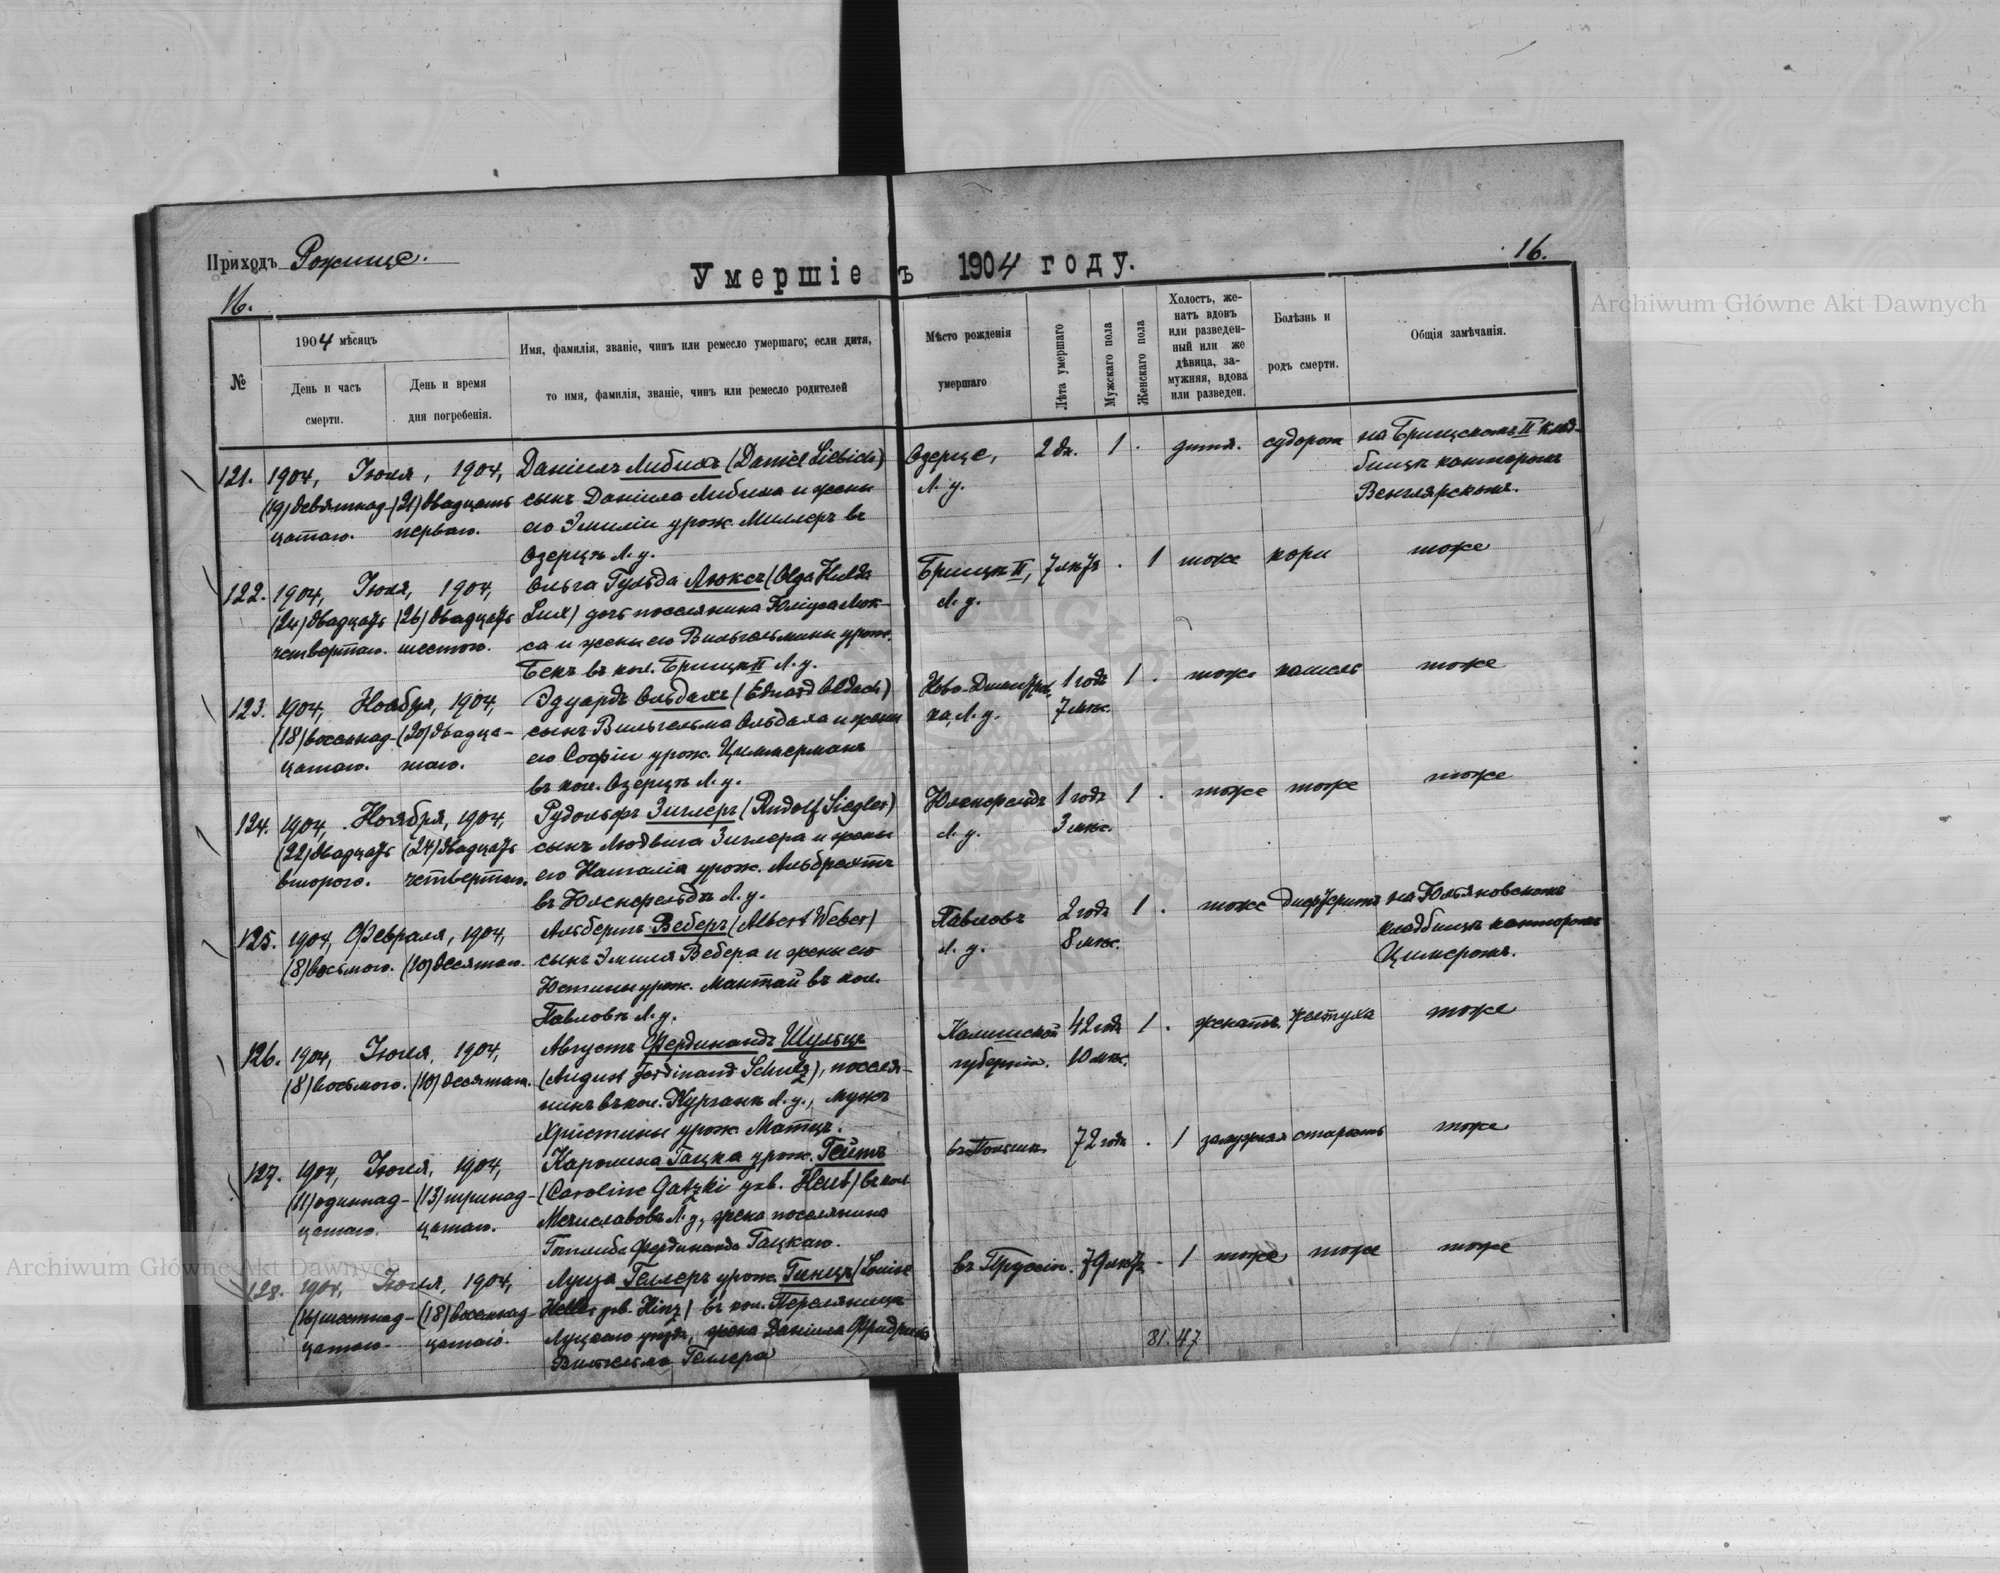 Приходъ Рожище.
Умершіе въ 1904 году.
16.
16.
№
1904 мѣсяцъ
День и часъ
смерти.
День и время
дня погребенія.
Имя, фамилія, званіе, чинъ или ремесло умершаго; если дитя,
то имя, фамилія, званіе, чинъ или ремесло родителей
Мѣсто рожденія
умершаго
Лѣта умершаго
Мужскаго пола
Женскаго пола
Холостъ, же-
натъ вдовъ
или разведен-
ный или же
дѣвица, за-
мужняя, вдова
или разведен.
Болѣзнь и
родъ смерти.
Общія замѣчанія.
121. 1904, Іюля, 1904, Даніилъ Либихъ (Daniel Liebich) Озерце, 2 дн. 1 . дитя. судороги на Брищскомъ II клад-
(19) девятнад- (21) двадцать сынъ Даніила Либиха и жены Л. у. бищѣ канторомъ
цатаго. перваго. его Эмиліи урож. Миллеръ въ Венглярскомъ.
Озерцѣ Л. у.
122. 1904, Іюля, 1904, Ольга Гульда Люксъ (Olga Hulda Брищи II, 7 лѣтъ . 1 тоже кори тоже
(24) двадцать (26) двадцать Lux) дочь поселянина Юліуса Люк- Л. у.
четвертаго. шестого. са и жены его Вильгельмины урож.
Бекъ въ кол. Брищи II Л. у.
123. 1904, Ноября, 1904, Эдуардъ Ольдахъ (Eduard Oldach) 1 годъ 1 . тоже кашель тоже
(18) восемнад- (20) двадца- сынъ Вильгельма Ольдаха и жены ка, Л. у. 7 мѣс.
цатаго. таго. его Софіи урож. Циммерманъ
въ кол. Озерцѣ Л. у.
124. 1904, Ноября, 1904, Рудольфъ Зиглеръ (Rudolf Siegler) Юзенфельдъ 1 годъ 1 . тоже тоже тоже
(22) двадцать (24) двадцать сынъ Людвига Зиглера и жены Л. у. 3 мѣс.
второго. четвертаго. его Наталіи урож. Альбрехтъ
въ Юзенфельдѣ Л. у.
125. 1904, Февраля, 1904, Альбертъ Веберъ (Albert Weber) Павловъ 2 года 1 . тоже дифтеритъ на Юльяновскомъ
(8) восьмого. (10) десятаго. сынъ Эмиля Вебера и жены его Л. у. 8 мѣс. кладбищѣ канторомъ
Юстины урож. Мантай въ кол. Цимеромъ.
Павловъ Л. у.
126. 1904, Іюля, 1904, Августъ Фердинандъ Шульцъ Калишской 42 года 1 . женатъ. желтуха тоже
(8) восьмого. (10) десятаго. (August Ferdinand Schulz), поселя- губерніи. 10 мѣс.
нинъ въ кол. Курганы Л. у., мужъ
Христины урож. Матцъ.
127. 1904, Іюля, 1904, Каролина Гацка урож. Гейтъ въ Польши 72 года . 1 замужняя старость тоже
(11) одиннад- (13) тринад- (Caroline Gatzki geb. Heut) въ кол.
цатаго. цатаго. Мечиславовъ Л. у., жена поселянина
Готлиба Фердинанда Гацкаго.
128. 1904, Іюля, 1904, Луиза Геллеръ урож. Гинцъ (Louise въ Пруссіи. 79 лѣтъ . 1 тоже тоже тоже
(16) шестнад- (18) восемнад- Heller geb. Hinz) въ кол. Пересяница
цатаго. цатаго. Луцкаго уѣзда, жена Даніила Фридриха
Вильгельма Геллера
81. 47
Archiwum Główne Akt Dawnych
Archiwum Główne Akt Dawnych